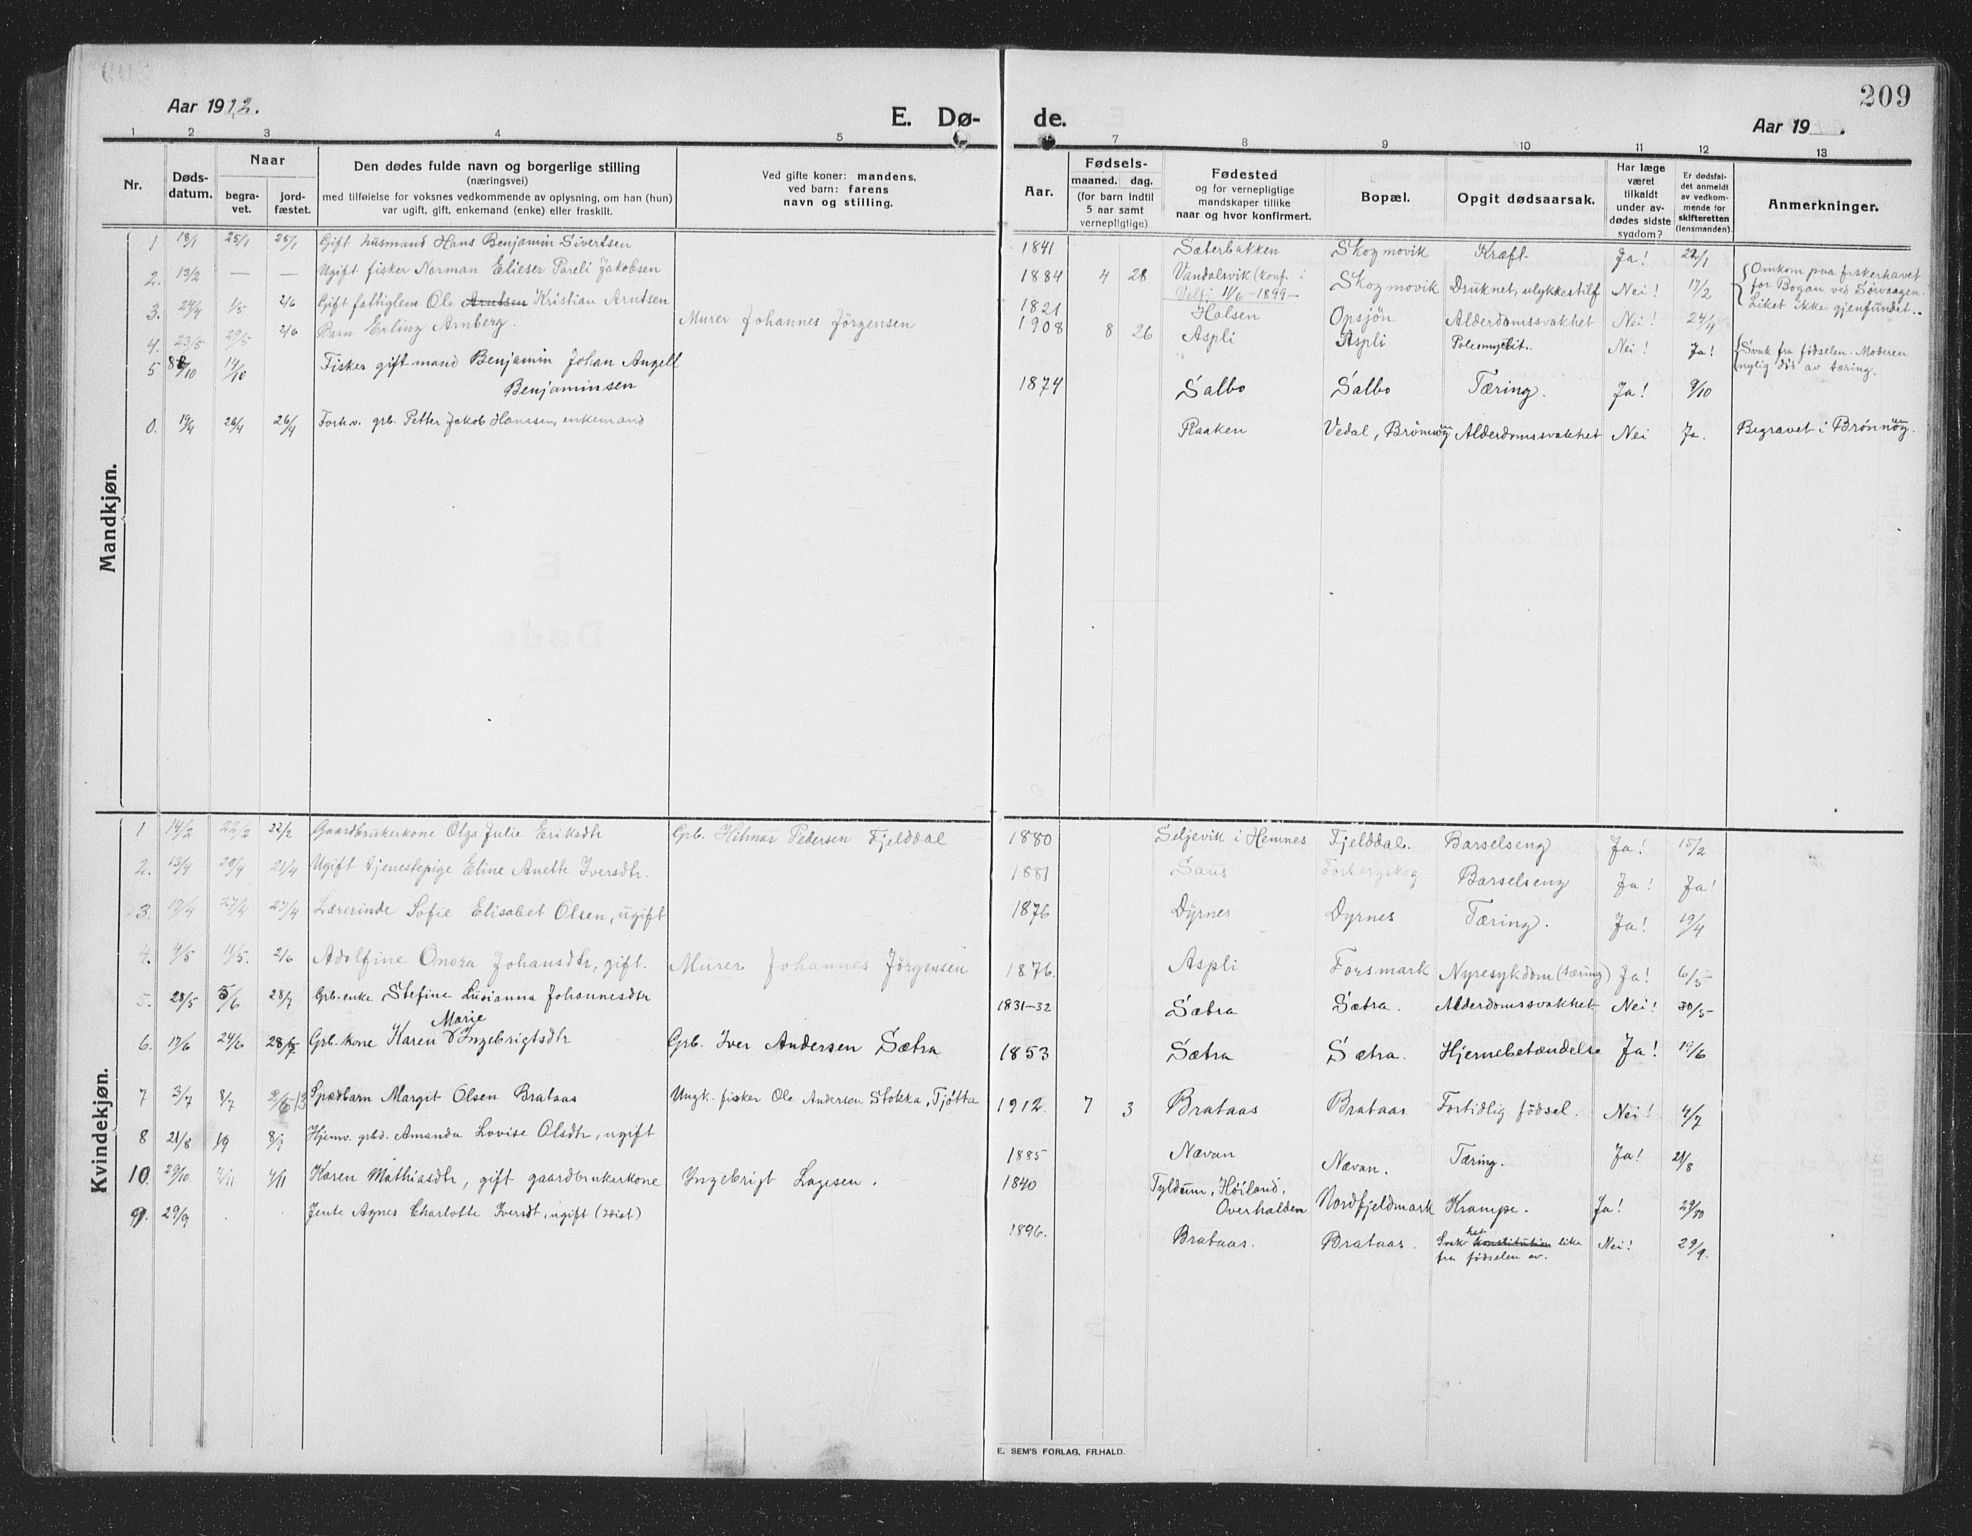 209
Aar 1912.
E. Dø-
de.
Aar 19 .
1 2 3 4 5 7 8 9 10 11 12 13
Nr.
Døds-
datum.
Naar
begra-
vet.
jord-
fæstet.
Den dødes fulde navn og borgerlige stilling
(næringsvei)
med tilføielse for voksnes vedkommende av oplysning, om han (hun)
var ugift, gift, enkemand (enke) eller fraskilt.
Ved gifte koner: mandens,
ved barn: farens
navn og stilling.
Aar.
Fødsels-
maaned. dag.
(for barn indtil
5 aar samt
vernepligtige)
Fødested
og for vernepligtige
mandskaper tillike
naar og hvor konfirmert.
Bopæl.
Opgit dødsaarsak.
Har læge
været
tilkaldt
under av-
dødes sidste
sygdom?
Er dødsfal-
det anmeldt
av vedkom-
mende for
skifteretten
(lensmanden).
Anmerkninger.
Mandkjøn.
1 18/1 25/1 25/1 Gift husmand Hans Benjamin Sivertsen 1841 Sæterbakken Skogmovik Kræft Ja! 22/1
2. 13/2 — — Ugift fisker Norman Elieser Pareli Jakobsen 1884 4 28 Vandalsvik (konf. i Skogmovik Druknet, ulykkestilf Nei! 17/2 Omkom paa fiskerhavet
Velfj. 11/6 - 1899 - for Bogøn ved Sørvaagen.
Liket ikke gjenfundet..
3. 24/4 1/5 2/6 Gift fattiglem Ole Arntsen Kristian Arntsen 1821 Holsen Opsjøn Alderdomssvakhet Nei! 24/4
4. 23/5 29/5 2/6 Barn Erling Amberg. Murer Johannes Jörgensen 1908 8 26 Aspli Aspli Poliomyelit.. Nei! Ja! Svak fra fødselen. Moderen
nylig död av tæring.
5 8/10 14/10 Fisker gift mand Benjamin Johan Angell
Benjaminsen 1874 Salbo Salbo Tæring. Ja! 9/10
0. 19/4 26/4 26/4 Forhv. grb. Petter Jakob Hanssen, enkemand Raaken Vedal, Brønnøy Alderdomssvakhet Nei Ja. Begravet i Brønnøy.
Kvindekjøn.
1 14/2 22/2 22/2 Gaardbrukerkone Olga Julie Eriksdtr Grb. Hilmar Pedersen Fjelddal 1880 Seljevik i Hemnes Fjelddal. Barselseng Ja! 15/2
2. 13/4 20/4 21/4 Ugift tjenestepige Eline Anette Iversdtr. 1881 Saus Forbergskog Barselseng Ja! Ja!
3. 19/4 27/4 27/4 Lærerinde Sofie Elisabet Olsen, ugift 1876 Dyrnes Dyrnes Tæring. Ja! 19/4
4. 4/5 11/5. 2/6 Adolfine Onora Johansdtr, gift. Murer Johannes Jörgensen 1876. Aspli Forsmark Nyresykdom (tæring) Ja! 6/5
5. 28/5 5/6 28/7 Grb.enke Stefine Lusianna Johannesdtr 1831-32 Sætra Sætra. Alderdomssvakhet Nei! 30/5
Marie
6. 17/6 24/6 28/7. Grb.kone Karen Ingebrigtsdtr Grb. Iver Andersen Sætra 1853 Sætra Sætra. Hjernebetændelse Ja! 19/6
7 3/7 8/7 Spædbarn Margit Olsen Brataas Ungk. fisker Ole Andersen Stokka, Tjøtta 1912. 7 3 Brataas Brataas Fortidlig födsel. Nei! 4/7
8 21/8 Hjemv. grbd. Amanda Lovise Olsdtr, ugift 1885 Nævan Nævan. Tæring. Ja! 21/8
10. 29/10 4/11 4/11 Karen Mathiasdtr, gift gaardbrukerkone Ingebrigt Lagesen. 1840 Tyldum, Höiland,
Overhalden Nordfjeldmark Krampe. Ja! 29/10
9. 29/9 Jente Agnes Charlotte Iversdt, ugift (idiot) 1896. Brataas. Brataas. Svakhet konstitution like
fra födselen av. Nei! 29/9.
E. SEM'S FORLAG, FR.HALD.